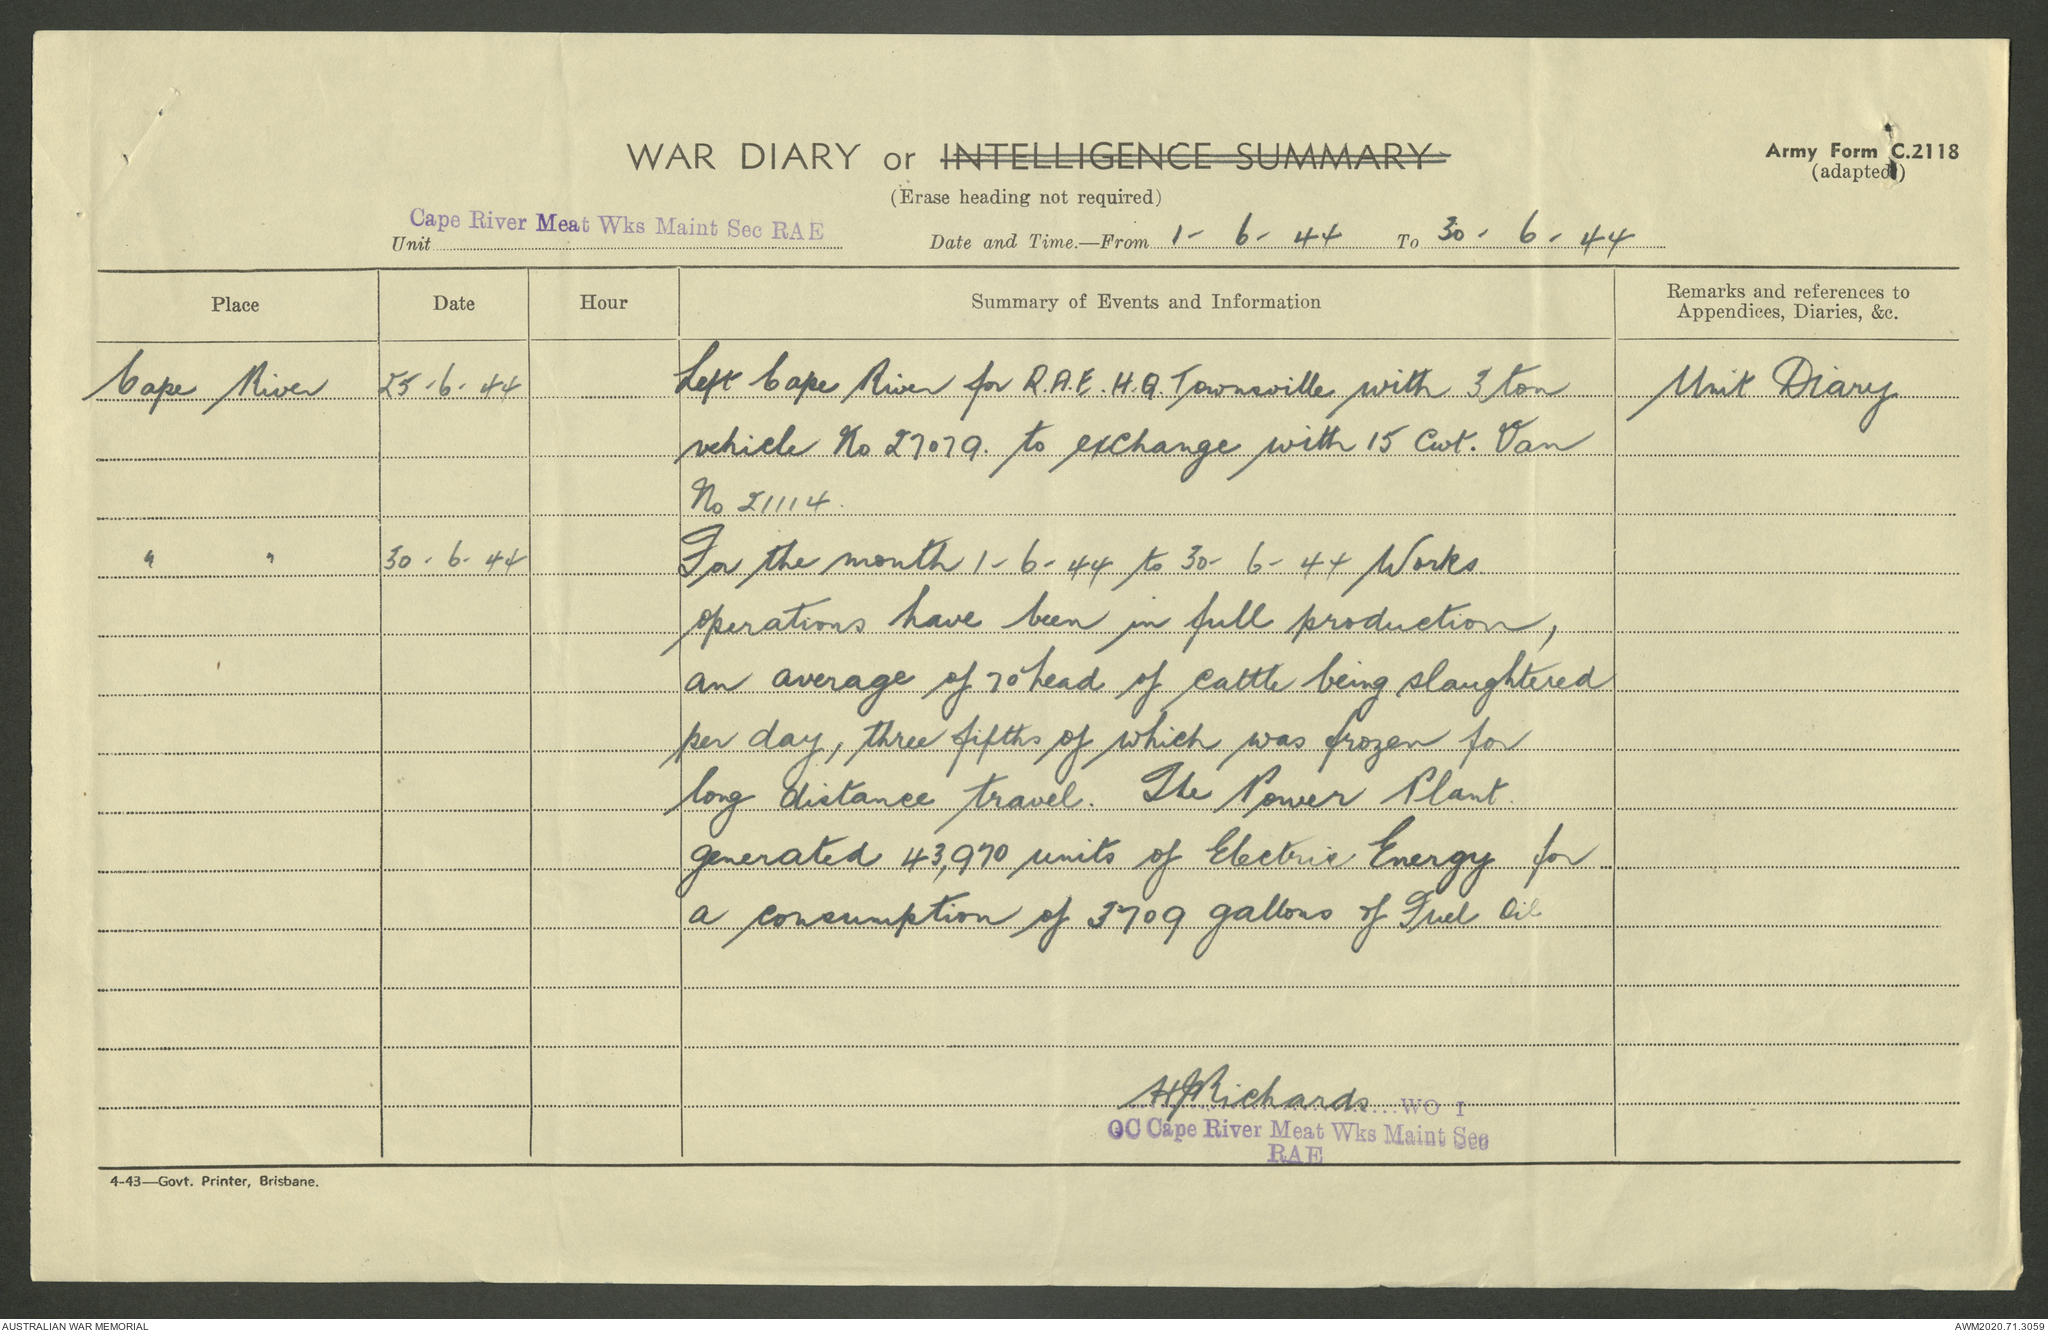 WAR DIARY or INTELLIGENCE SUMMARY
Army Form C.2118
(adapted)
(Erase heading not required)
Unit Cape River Meat Wks Maint Sec RAE
Date and Time.—From 1-6-44 To 30-6-44
Place Date Hour Summary of Events and Information Remarks and references to
Appendices, Diaries, &c.
Cape River 25-6-44 Left Cape River for R.A.E. H.Q. Townsville with 3 ton Unit Diary
vehicle No 27079. to exchange with 15 Cwt. Van
No 21114.
" " 30-6-44 For the month 1-6-44 to 30-6-44 Works
operations have been in full production,
an average of 70 head of cattle being slaughtered
per day, three fifths of which was frozen for
long distance travel. The Power Plant
generated 43,970 units of Electric Energy for
a consumption of 3709 gallons of Fuel Oil
HJRichards WO I
OC Cape River Meat Wks Maint Sec
RAE
4-43—Govt. Printer, Brisbane.
AUSTRALIAN WAR MEMORIAL
AWM2020.71.3059